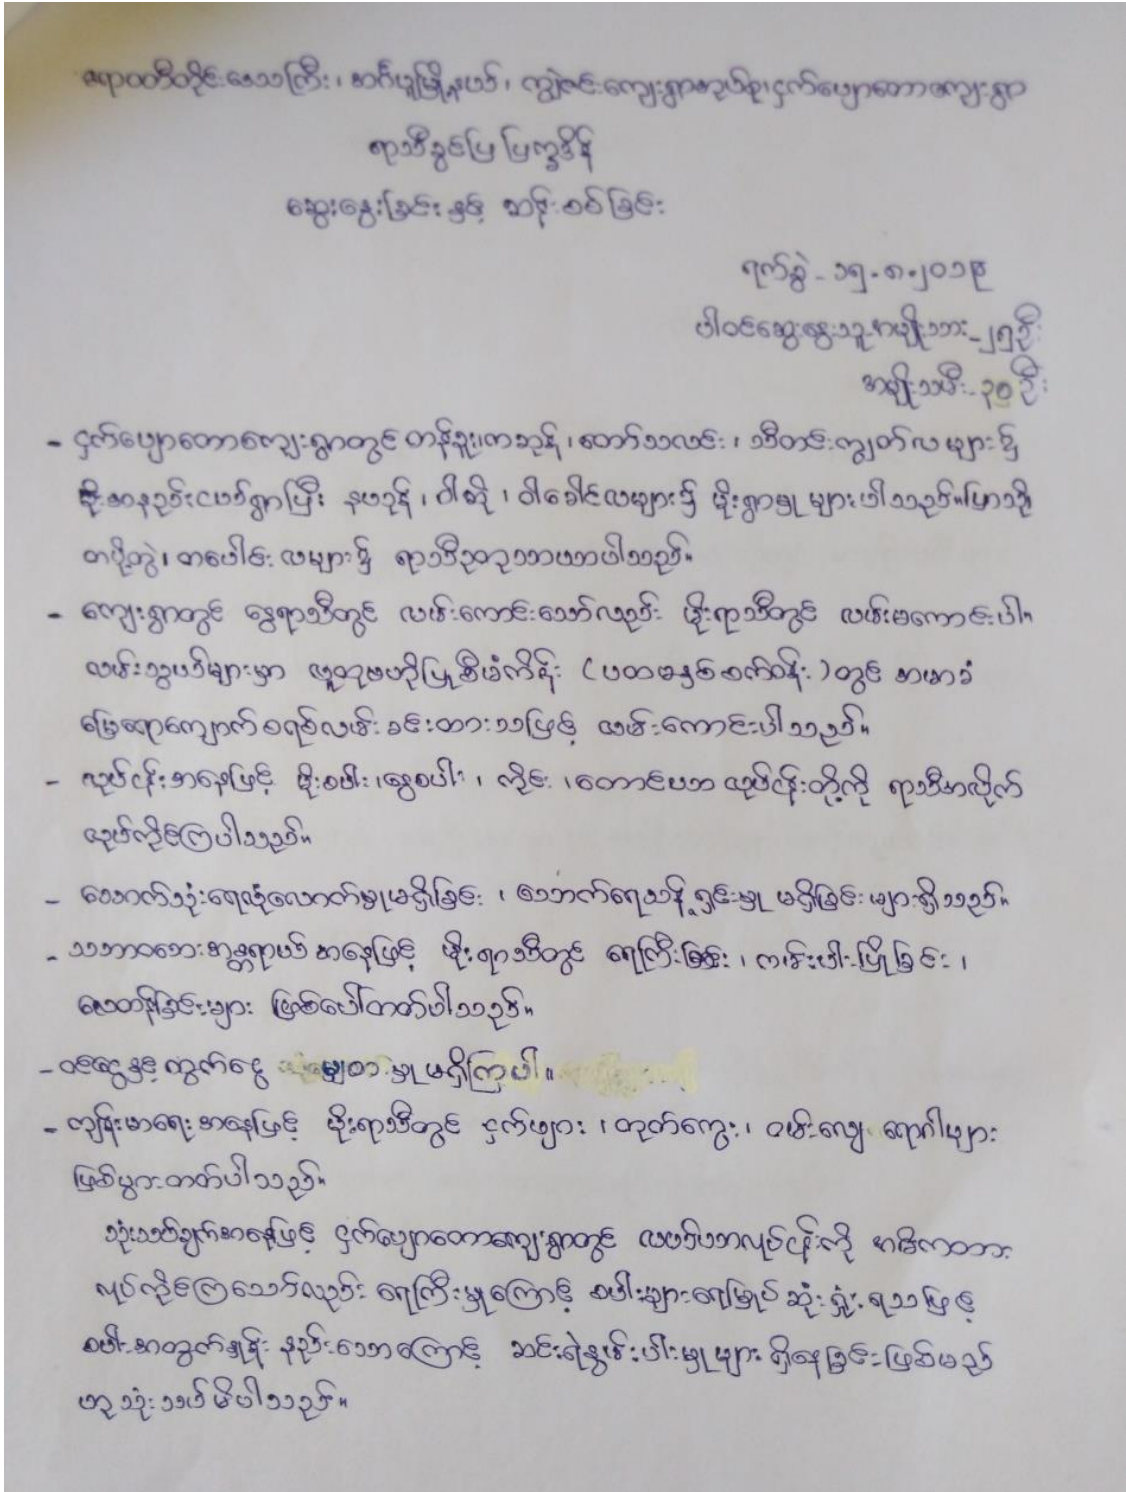 ဧရာဝတီတိုင်းဒေသကြီး၊ အင်္ဂပူမြို့နယ်၊ ကျွဲဇင်းကျေးရွာအုပ်စု၊ ငှက်ပျောတောကျေးရွာ
ရာသီခွင်ပြ ပြက္ခဒိန်
ဆွေးနွေးခြင်း နှင့် ဆန်းစစ်ခြင်း
ရက်စွဲ - ၁၅.၈.၂၀၁၉
ပါဝင်ဆွေးနွေးသူ အမျိုးသား - ၂၅ဦး
အမျိုးသမီး - ၃၀ ဦး
- ငှက်ပျောတောကျေးရွာတွင် တန်ခူး၊ ကဆုန်၊ တော်သလင်း၊ သီတင်းကျွတ်လများ၌
မိုးအနည်းငယ်ရွာပြီး နယုန်၊ ဝါဆို၊ ဝါခေါင်လများ၌ မိုးရွာမှု များပါသည်။ပြာသို၊
တပို့တွဲ၊ တပေါင်း လများ၌ ရာသီဥတုသာယာပါသည်။
- ကျေးရွာတွင် နွေရာသီတွင် လမ်းကောင်းသော်လည်း မိုးရာသီတွင် လမ်းမကောင်းပါ။
လမ်းသွယ်များမှာ လူထုဗဟိုပြုစီမံကိန်း (ပထမနှစ်စက်ဝန်း)တွင် အမာခံ
မြေချောကျောက်စရစ်လမ်း ခင်းထားသဖြင့် လမ်းကောင်းပါသည်။
- လုပ်ငန်းအနေဖြင့် မိုးစပါး၊ နွေစပါး၊ ကိုင်း၊ တောင်ယာ လုပ်ငန်းတို့ကို ရာသီအလိုက်
လုပ်ကိုင်ကြပါသည်။
- သောက်သုံးရေလုံလောက်မှုမရှိခြင်း၊ သောက်ရေသန့်ရှင်းမှု မရှိခြင်းများရှိသည်။
- သဘာဝဘေးအန္တရာယ် အနေဖြင့် မိုးရာသီတွင် ရေကြီးခြင်း၊ ကမ်းပါးပြိုခြင်း၊
လေတန်ခြင်းများ ဖြစ်ပေါ်တတ်ပါသည်။
- ဝင်ငွေနှင့်ထွက်ငွေ မျှတမှု မရှိကြပါ။
- ကျန်းမာရေး အနေဖြင့် မိုးရာသီတွင် ငှက်ဖျား၊ တုတ်ကွေး၊ ဝမ်းလျှော ရောဂါများ
ဖြစ်ပွားတတ်ပါသည်။
သုံးသပ်ချက်အနေဖြင့် ငှက်ပျောတောကျေးရွာတွင် လယ်ယာလုပ်ငန်းကို အဓိကထား
လုပ်ကိုင်ကြသော်လည်း ရေကြီးမှုကြောင့် စပါးများရေမြုပ်ဆုံးရှုံးရသဖြင့်
စပါးအထွက်နှုန်း နည်းသောကြောင့် ဆင်းရဲနွမ်းပါးမှု များ ရှိနေခြင်းဖြစ်မည်
ဟု သုံးသပ်မိပါသည်။